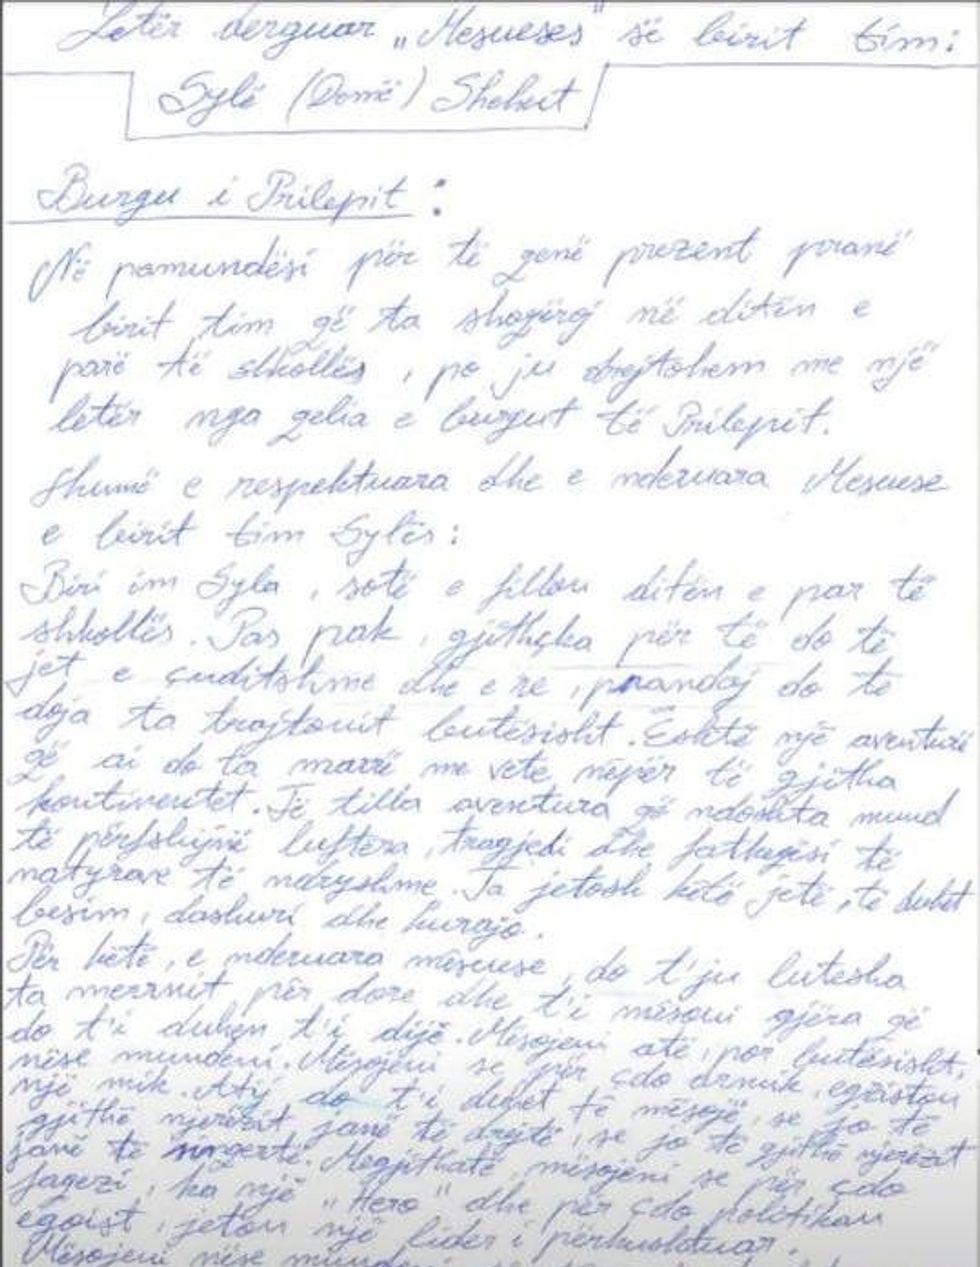 Letër derguar „Mesueses" së birit tim:
Sylë (Domë) Shehut
Burgu i Prilepit:
Në pamundësi për të qenë prezent pranë
birit tim që ta shoqëroj në ditën e
parë të shkollës, po ju drejtohem me një
letër nga qelia e burgut të Prilepit.
Shumë e respektuara dhe e nderuara Mesuese
e birit tim Sylës:
Biri im Syla, sotë e fillou ditën e par të
shkollës. Pas pak, gjithçka për të do të
jet e çuditshme dhe e re, prandaj do të
doja ta trajtonit butësisht. Është një aventurë
që ai do ta marrë me vete nëpër të gjitha
kontinentet. Të tilla aventura që ndoshta mund
të përfshijnë luftëra, tragjedi dhe fatkeqësi të
natyrave të ndryshme. Ta jetosh këtë jetë, të duhet
besim, dashuri dhe kurajo.
Për këtë, e nderuara mësuese, do t'ju lutesha
ta merrnit për dore dhe t'i mësoni gjëra që
do t'i duhen t'i dijë. Mësojeni atë, por butësisht,
nëse mundeni. Mësojeni se për çdo armik, egziston
një mik. Atij do t'i duhet të mësojë, se jo të
gjithë njerëzit janë të drejtë, se jo të gjithë njerëzit
janë të singertë. Megjithatë, mësojeni se për çdo
faqezi, ka një "Hero" dhe për çdo politikan
egoist, jeton një lider i përkushtuar.
Mësojeni nëse